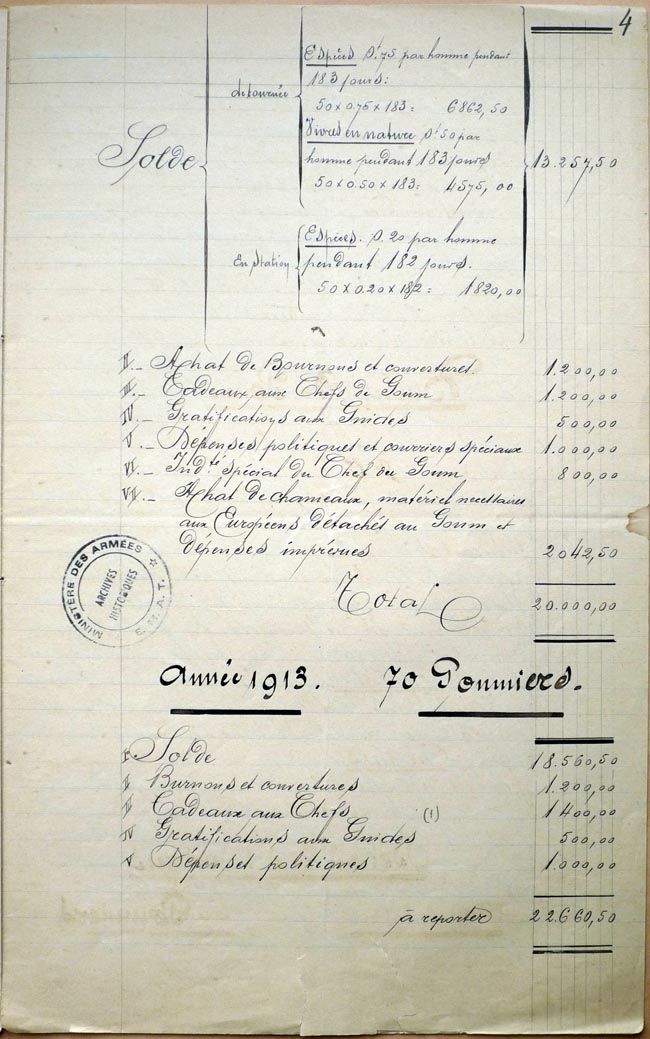 4
Espèces 0f75 par homme pendant
183 jours:
de tournée
50 x 0.75 x 183 = 6862,50
Vivres en nature 0f50 par
homme pendant 183 jours
50 x 0.50 x 183 = 4575,00
Solde
13.257,50
Espèces. 0.20 par homme
En station
pendant 182 jours.
50 x 0.20 x 182 = 1820,00
II._ Achat de Bournous et couvertures. 1.200,00
III._ Cadeaux aux Chefs de Goum 1.200,00
IV._ Gratifications aux Guides 500,00
V._ Dépenses politiques et courriers spéciaux 1.000,00
VI._ Indté spécial du Chef du Goum 800,00
VII._ Achat de chameaux, matériel nécessaires
aux Européens détaché au Goum et
dépenses imprévues 2042,50
MINISTÈRE DES ARMÉES
ARCHIVES
HISTORIQUES
E.M.A.T.
Total 20.000,00
Année 1913. 70 Goumiers.
I Solde 18.560,50
II Burnous et couvertures 1.200,00
III Cadeaux aux Chefs (1) 1400,00
IV Gratifications aux Guides 500,00
V Dépenses politiques 1.000,00
à reporter 22.660,50